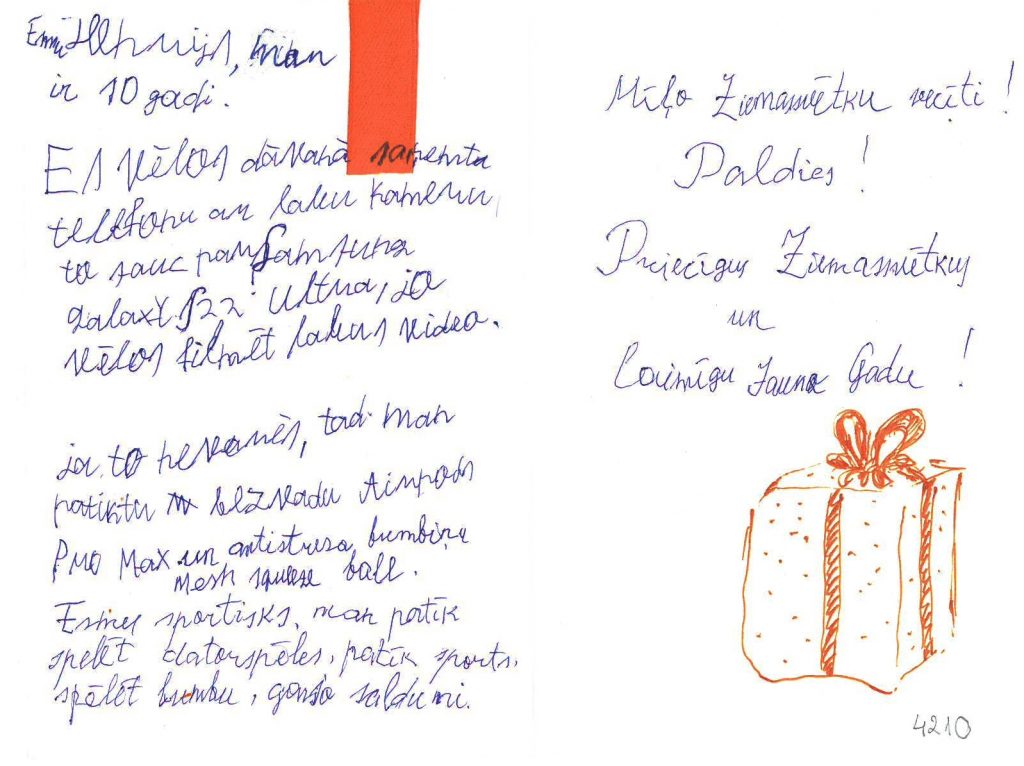 Esmu Henrijs, man
ir 10 gadi.
Es vēlos dāvanā saņemtu
telefonu ar labu kameru,
to sauc par Samsung
galaxy S22 Ultra, jo
vēlos filmēt labus video.
ja to nevarēs, tad man
patiktu bezvadu Airpods
Pro Max un antistresa bumbiņa
Mesh squeeze ball.
Esmu sportisks, man patīk
spēlēt datorspēles, patīk sports,
spēlēt bumbu, garšo saldumi.
Mīļo Ziemassvētku vecīti!
Paldies!
Priecīgus Ziemassvētkus
un
laimīgu Jauno Gadu!
4210